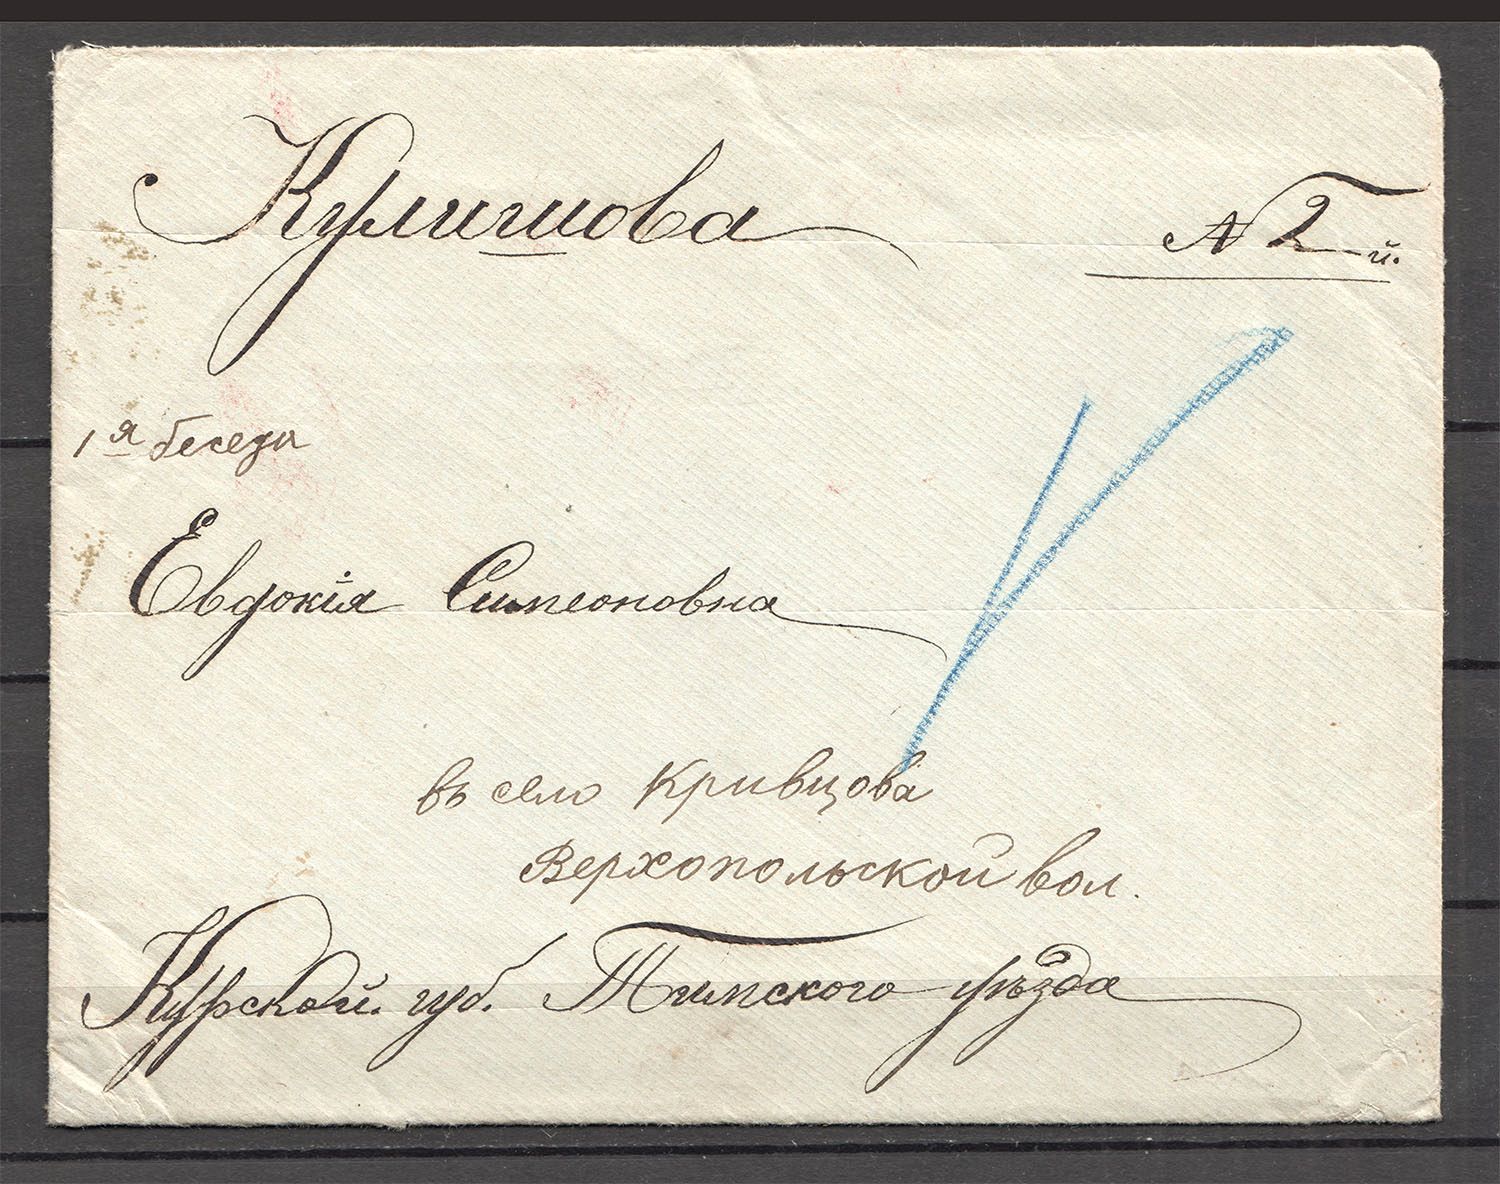 Кулишова
№ 2й.
1я беседы
Евдокія Симеоновна
въ село Кривцова
Верхопольской вол.
Курской. губ. Тимского уѣзда